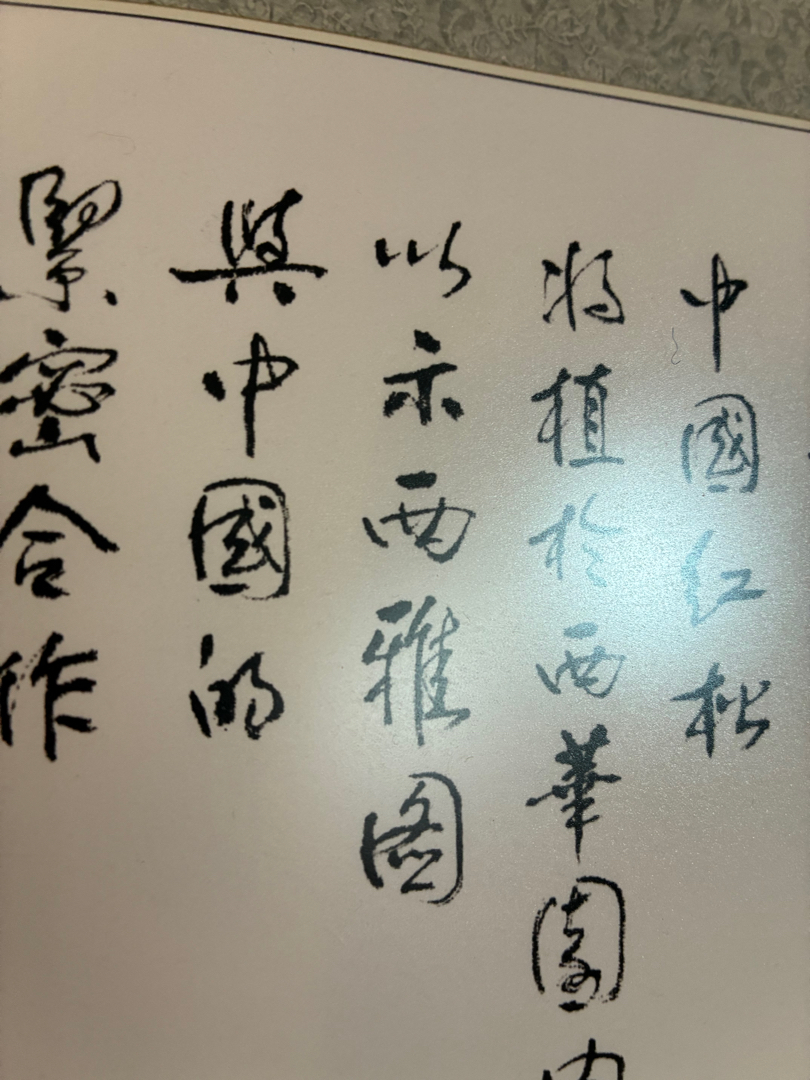 中國红松
将植於西華園内
以示西雅图
與中國的
緊密合作